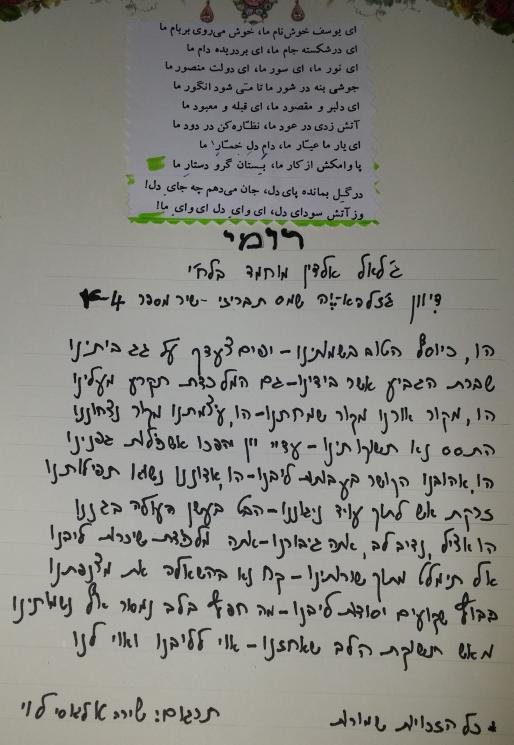 ای یوسف خوش‌نام ما، خوش می‌روی بر بام ما
ای درشکسته جام ما، ای بردریده دام ما
ای نور ما، ای سور ما، ای دولت منصور ما
جوشی بنه در شور ما تا می شود انگور ما
ای دلبر و مقصود ما، ای قبله و معبود ما
آتش زدی در عود ما، نظّاره کن در دود ما
ای یار ما عیّار ما، دام دلِ خمّار ما
پا وامکش از کار ما، بستان گرو دستار ما
در گِل بمانده پای دل، جان می‌دهم چه جای دل!
وز آتش سودای دل، ای وای دل ای وای ما!
רומי
ג'לאל אלדין מוחמד בלח'י
דיוון ע'זליאת שמס תבריזי - שיר מספר 4
הו, כיוסף הטוב בשמותינו - יפים צעדך על גג ביתינו
שברת הגביע אשר בידינו - גם המלכודת תקרע מעלינו
הו, מקור אורנו מקור שמחתנו - הו, עוצמתנו מקור נצחוננו
התסס נא תשוקותינו - עדי יין הפכו אשכולות גפנינו
הו, אהובנו הקושר בעבותות ליבנו - הו, אדוננו נשוא תפילותנו
זרקת אש לתוך עוד ניגוננו - הבט בעשן העולה בגננו
הו אציל, נדיב לב, אתה גיבורנו - אתה מלכודת - שיכרות ליבנו
אל תימלט מתוך שורותינו - קח נא בהשאלה את מצנפתנו
בבוץ שקועים יסודות ליבנו - מה חפץ בלב נמסר אף נשמתינו
מאש תשוקת הלב שאחזנו - אוי לליבנו ואוי לנו
תרגום: שירה אלאסי לוי
* כל הזכויות שמורות